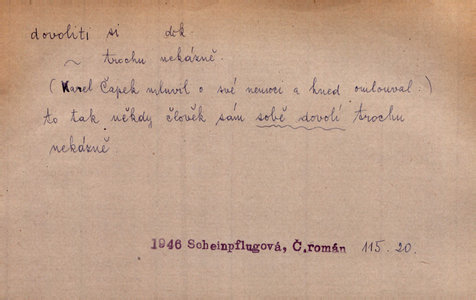 dovoliti si dok.
~ trochu nekázně.
(Karel Čapek mluvil o své nemoci a hned omlouval:)
to tak někdy člověk sám sobě dovolí trochu
nekázně.
1946 Scheinpflugová, Č.román 115. 20.